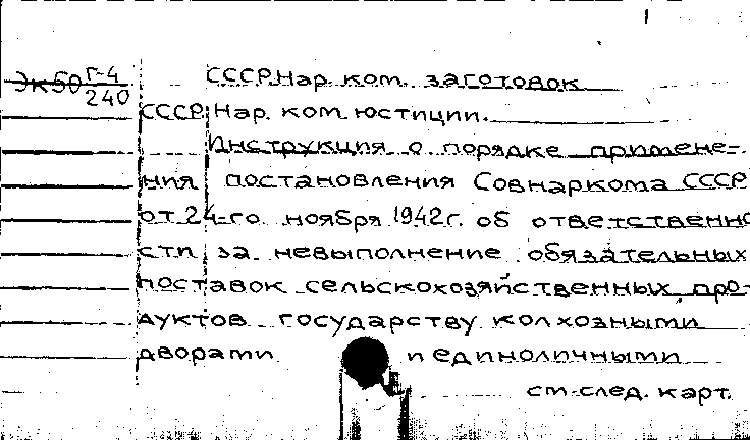 1
Эк50 Г-4/240
СССР. Нар. ком. заготовок
СССР. Нар. ком. юстиции.
Инструкция о порядке примене-
ния постановления Совнаркома СССР
от 24-го ноября 1942 г. об ответственно
сти за невыполнение обязательных
поставок сельскохозяйственных про-
дуктов государству колхозными
дворами и единоличными
см. след. карт.